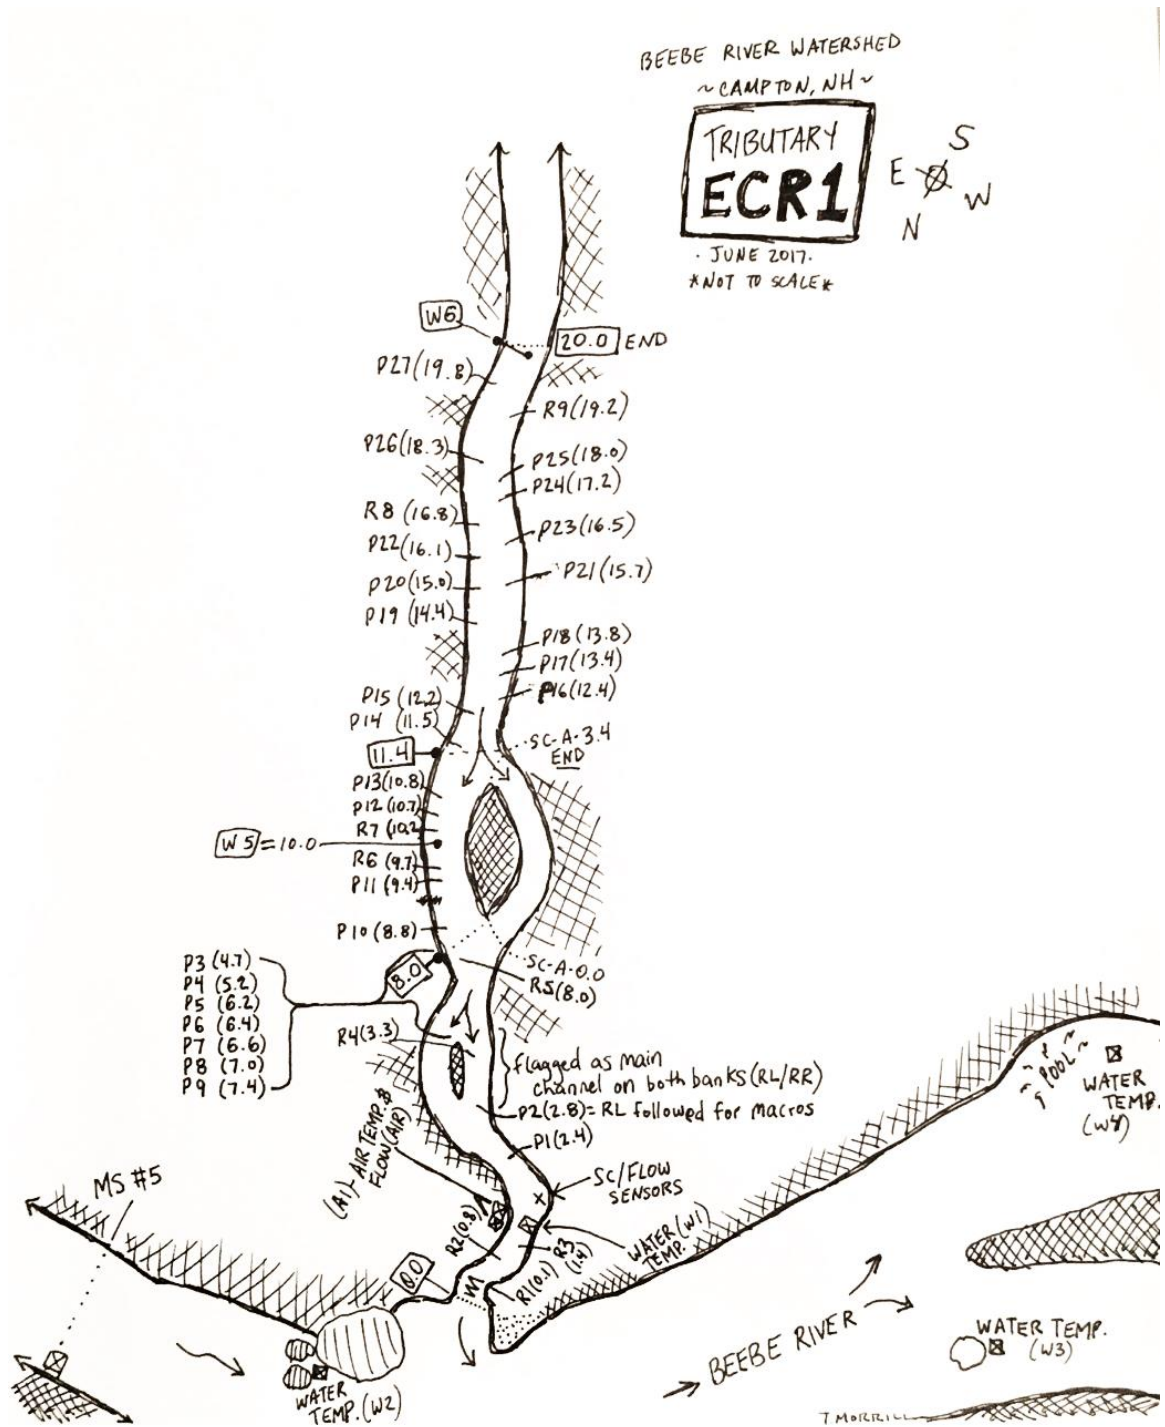 BEEBE RIVER WATERSHED
~ CAMPTON, NH ~
TRIBUTARY
ECR1
S
E
W
N
· JUNE 2017 ·
*NOT TO SCALE*
W6
20.0 END
P27(19.8)
R9(19.2)
P26(18.3)
P25(18.0)
P24(17.2)
R8 (16.8)
P23(16.5)
P22(16.1)
P21(15.7)
P20(15.0)
P19 (14.4)
P18 (13.8)
P17(13.4)
P16(12.4)
P15 (12.2)
P14 (11.5)
SC-A-3.4
END
11.4
P13(10.8)
P12(10.7)
R7(10.2)
W5=10.0
R6(9.7)
P11(9.4)
P10(8.8)
SC-A-0.0
R5(8.0)
8.0
P3 (4.7)
P4 (5.2)
P5 (6.2)
P6 (6.4)
P7 (6.6)
P8 (7.0)
P9 (7.4)
R4(3.3)
flagged as main
channel on both banks (RL/RR)
P2(2.8)= RL followed for macros
P1(2.4)
(A1)-AIR TEMP. &
FLOW (AIR)
SC/FLOW
SENSORS
WATER (W1)
TEMP.
R2(0.8)
R3
(1.4)
R1(0.1)
0.0
MS #5
POOL
WATER
TEMP.
(W4)
BEEBE RIVER
WATER TEMP.
(W3)
WATER
TEMP. (W2)
T MORRILL